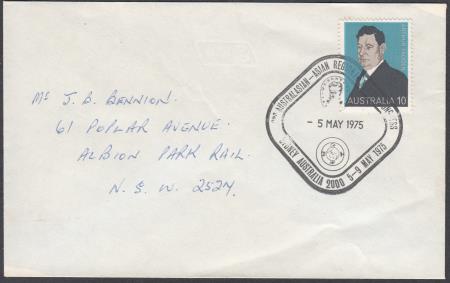 Mr J. B. BENNION.
61 POPLAR AVENUE.
ALBION PARK RAIL.
N. S. W. 2527.
AUSTRALIA 10
AUSTRALASIAN-ASIAN
- 5 MAY 1975
SYDNEY AUSTRALIA 2000 5-9 MAY 1975